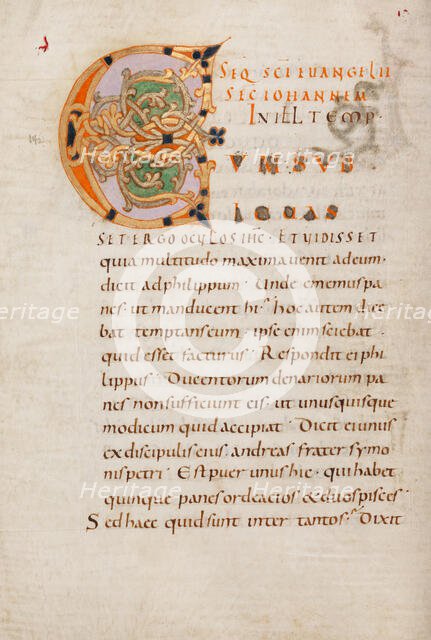 SEQ SCI EUANGELII
SEC IOHANNEM
IN ILL TEMP
C UM SUB
LEUAS
SET ERGO OCULOS IHC · ET UIDISSET
quia multitudo maxima uenit ad eum ·
dicit ad philippum · Unde ememus pa
nes · ut manducent hi · hoc autem dice
bat temptans eum · ipse enim sciebat ·
quid esset facturus · Respondit ei phi
lippus · Ducentorum denariorum pa
nes non sufficiunt eis · ut unusquisque
modicum quid accipiat · Dicit ei unus
ex discipulis eius · andreas frater symo
nis petri · Est puer unus hic · qui habet
quinque panes ordeacios & duos pisces ·
Sed haec quid sunt inter tantos · Dixit
Heritage Images